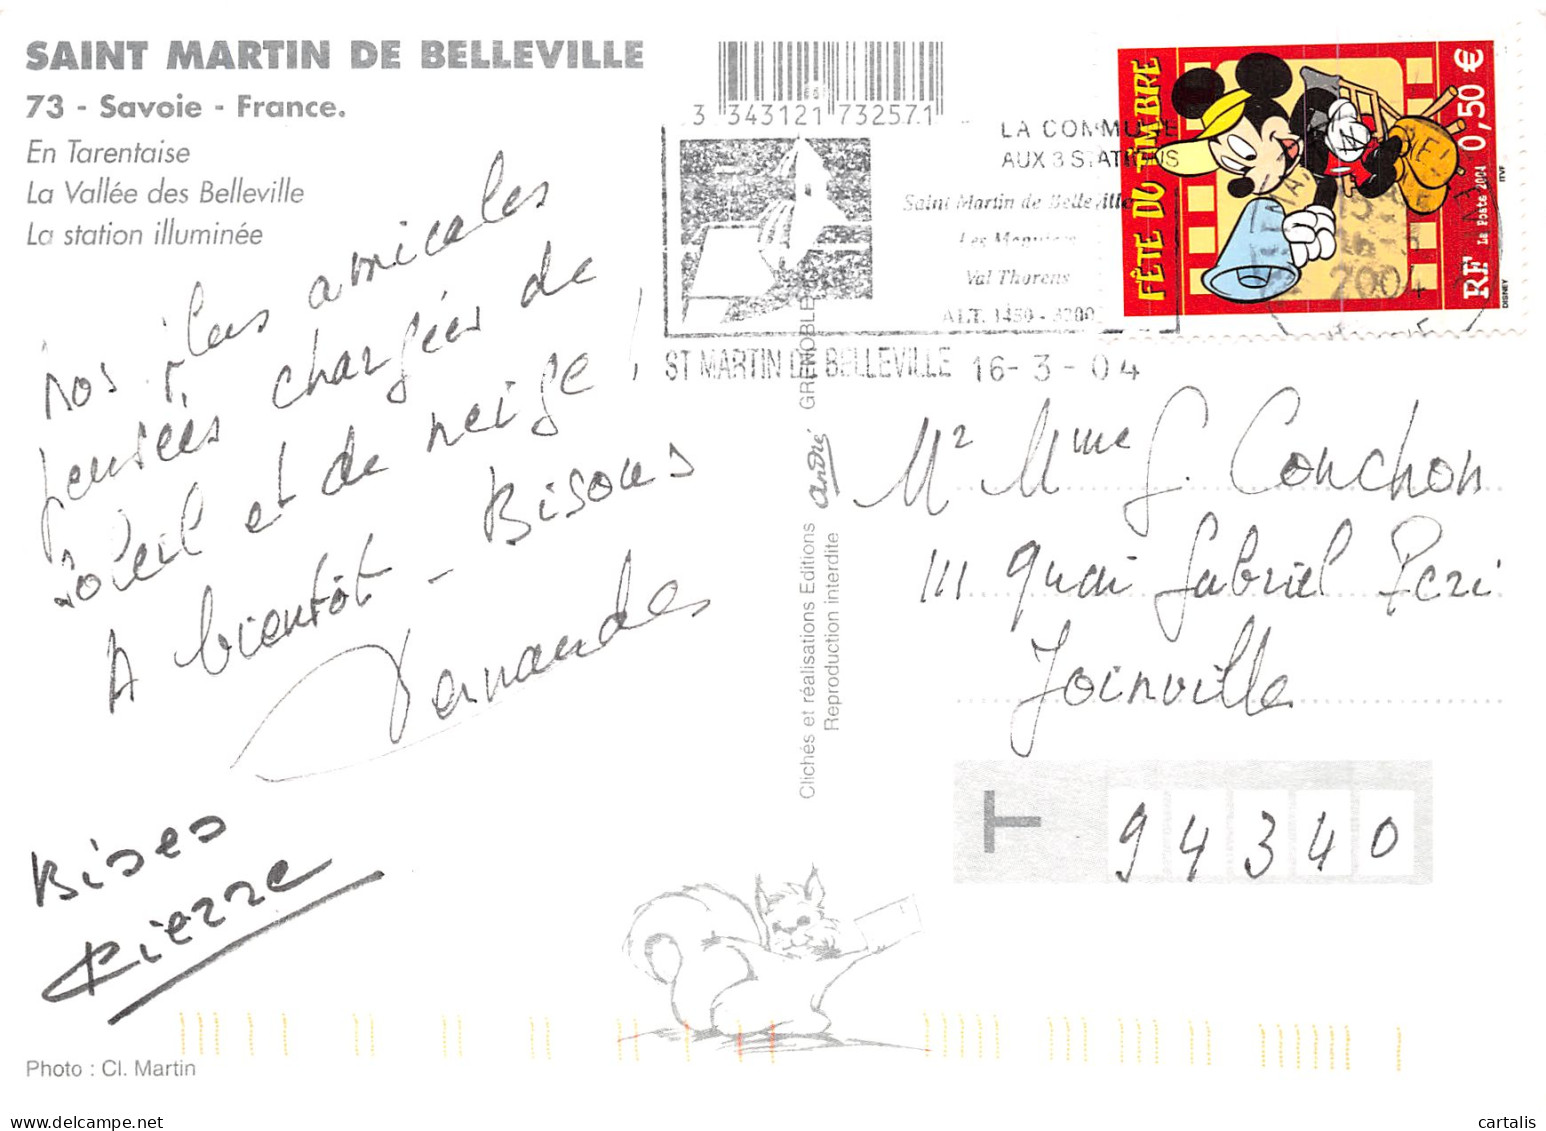 SAINT MARTIN DE BELLEVILLE
73 - Savoie - France.
En Tarentaise
La Vallée des Belleville
La station illuminée
nos plus amicales
pensées chargées de
soleil et de neige !
A bientôt - Bisous
Bises
Pierre
Photo : Cl. Martin
3 343121 732571
LA COMMUNE
AUX 3 STATIONS
Saint Martin de Belleville
Les Menuires
Val Thorens
ALT. 1450 - 3200
ST MARTIN DE BELLEVILLE 16- 3 - 04
FÊTE DU TIMBRE
0,50 €
La Poste 2004
RF
ITVF
DISNEY
2004
Clichés et réalisations Editions andré GRENOBLE
Reproduction interdite
Mr Mme G. Conchon
111 Quai Gabriel Peri
Joinville
T 94340
cartalis